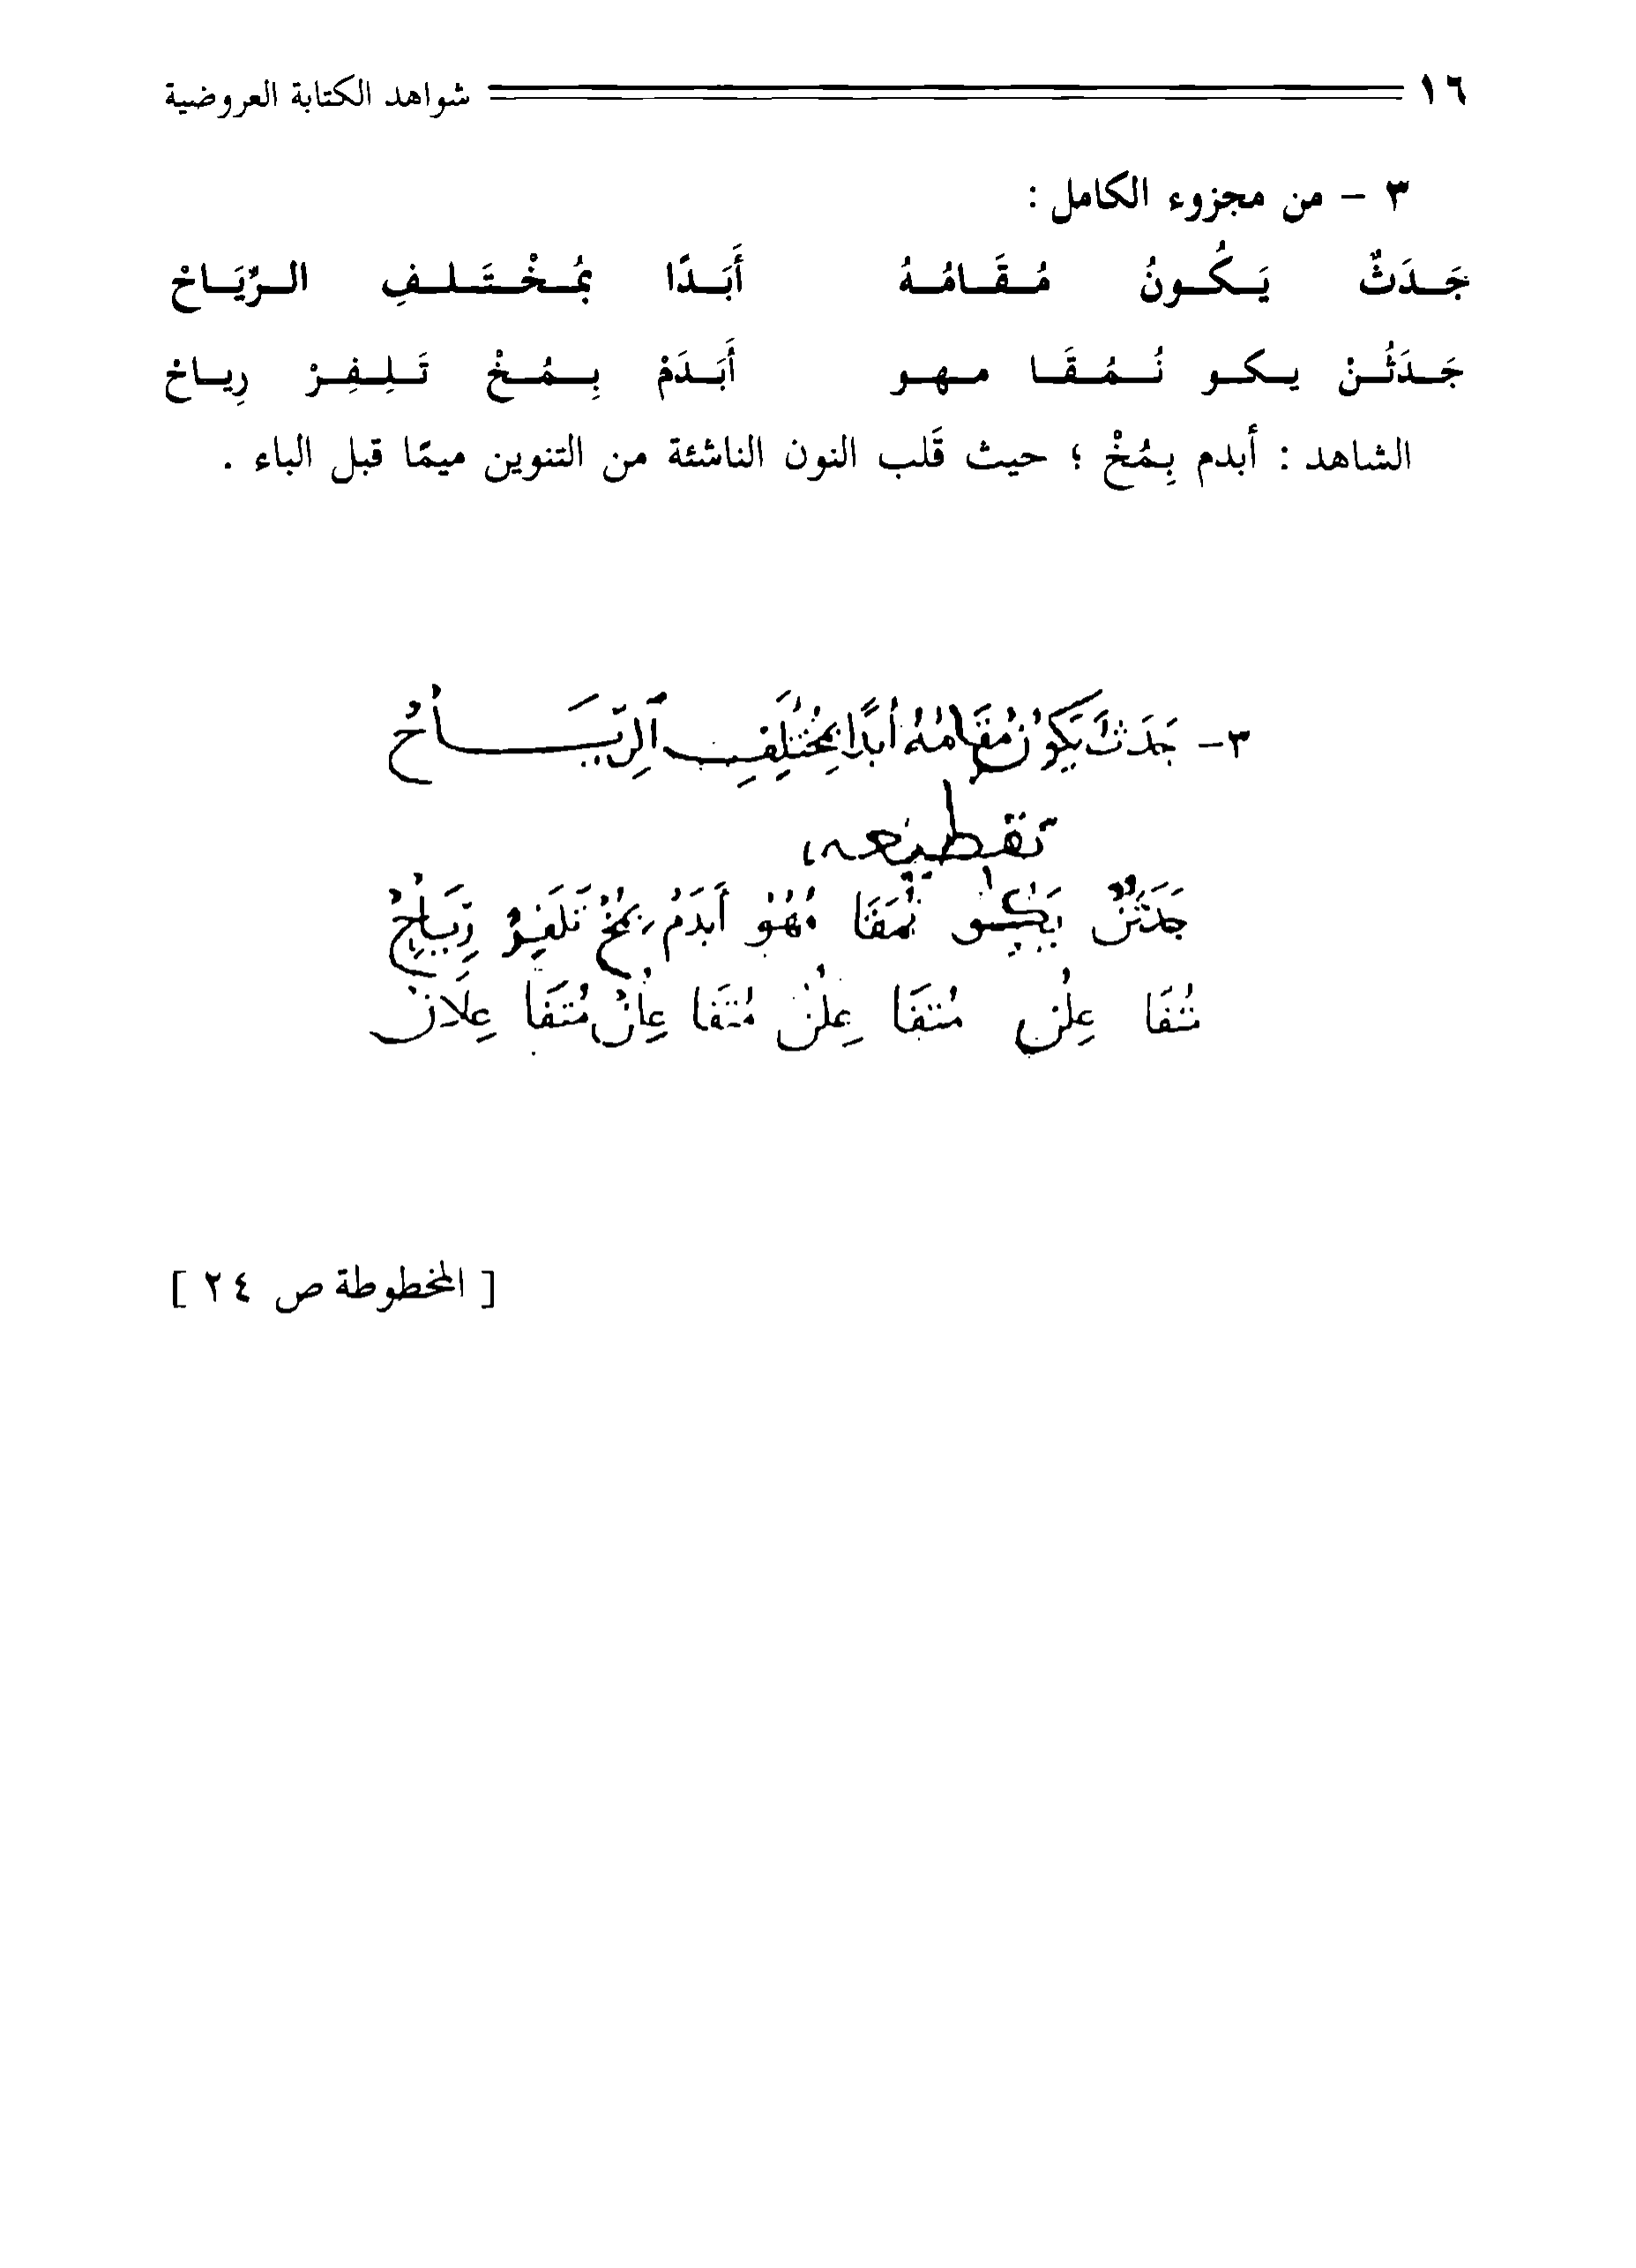 ١٦ شواهد الكتابة العروضية
٣ - من مجزوء الكامل :
جَـدَثٌ يَـكُـونُ مُـقَـامُـهُ أَبَـدًا بِمُـخْـتَـلـفِ الـرِّيَـاحْ
جَـدَثُـنْ يـكـو نُـمُـقَـا مـهـو أَبَـدَمْ بِـمُـخْ تَـلِـفِـرْ رِيـاحْ
الشاهد : أبدم بِـمُخْ ؛ حيث قَلب النون الناشئة من التنوين ميمًا قبل الباء .
٣- جَدَثٌ يَكُونُ مُقَامُهُ أَبَدًا بِمُخْتَلَفِ الرِّيَاحْ
تقطيعه
جَدَثُنْ يَكُو نُمَقَا مُهُوْ أَبَدَمْ بِمُخْ تَلَفِرْ رِيَاحْ
مُتَفَا عِلُنْ مُتَفَا عِلُنْ مُتَفَا عِلُنْ مُتَفَا عِلَانْ
[ المخطوطة ص ٢٤ ]